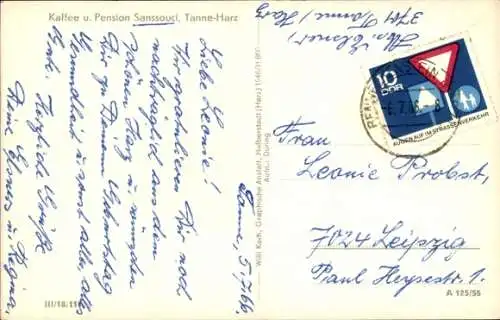 Kaffee u. Pension Sanssouci, Tanne-Harz
Tanne, 5.7.66.
Liebe Leonie!
Wir gratulieren Dir noch
nachträglich aus den
schönen Tag u. wünschen
Dir zu Deinem Geburtstag
Gesundheit u. sonst alles, alles
Gute. Herzliche Grüße
Deine Elsners u. Regina.
III/18/
Willi Koch, Graphische Anstalt, Halberstadt (Harz)
Aufn.: Döring
Elsner,
3701 Tanne/Harz
10
DDR
AUGEN AUF IM STRASSENVERKEHR
Frau
Leonie Probst,
7024 Leipzig
Paul Heysestr. 1.
A 125/55